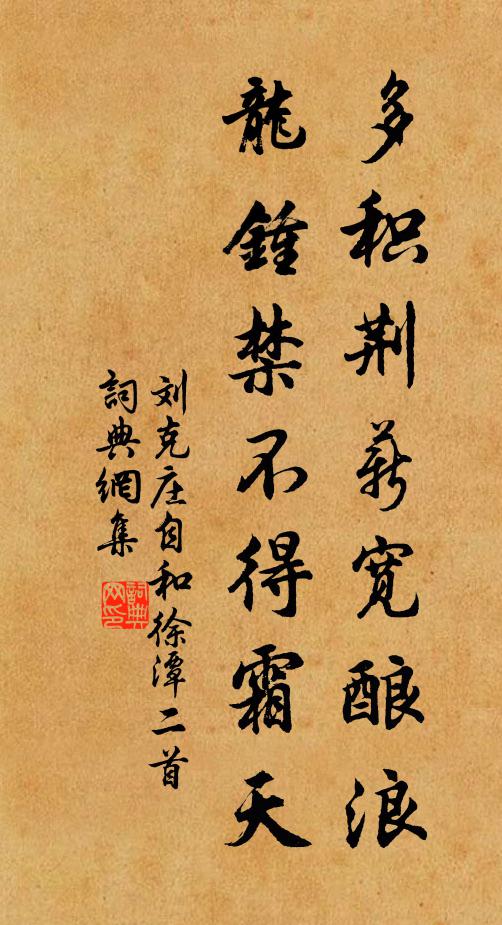 多积荆薪宽酿浪
龍鍾禁不得霜天
刘克庄自和徐潭二首
詞典網集
詞典网印